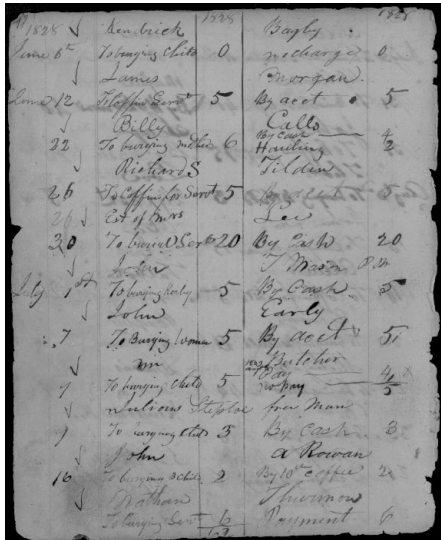 1828 Kendrick 1828 Bagby 1828
June 6th To burying child 0 no charge 0
James Morgan
June 12 To Coffin Servt 5 By acct 5
Billy Calls
22 To burying mother 6 By Cash 4
Hauling 2
Richards Tilden
26 To Coffin for Servt 5 By acct 5
26 Est of Mrs Lee
30 To burial Servt 20 By Cash 20
John T Mason
July 1st To burying body 5 By Cash 5
John Early
7 To Burying Woman 5 By acct 5
Mr Butcher
Pay 4
9 To burying child 5 no pay 5
Julious Steptoe free Man
9 To burying child 3 By Cash 3
John A Rowan
16 To burying child 2 By 10th Coffee 2
Nathan Thurmon
To burying Servt 6 Payment 6